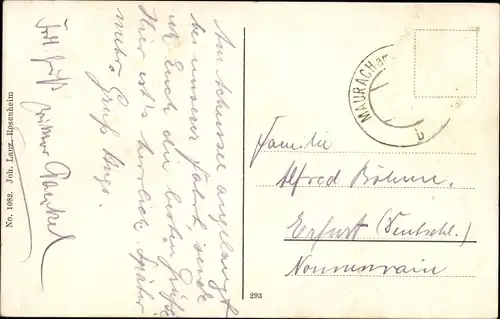 Am Achensee angelangt
bei unserer Fahrt, sende
ich Euch die besten Grüße
Hier ist's herrlich. Später
mehr. Gruß Hugo.
No. 1082. Joh. Lanz, Rosenheim
MAURACH am
b
Familie
Alfred Böhme.
Erfurt (Deutschl.)
Nonnenrain
293